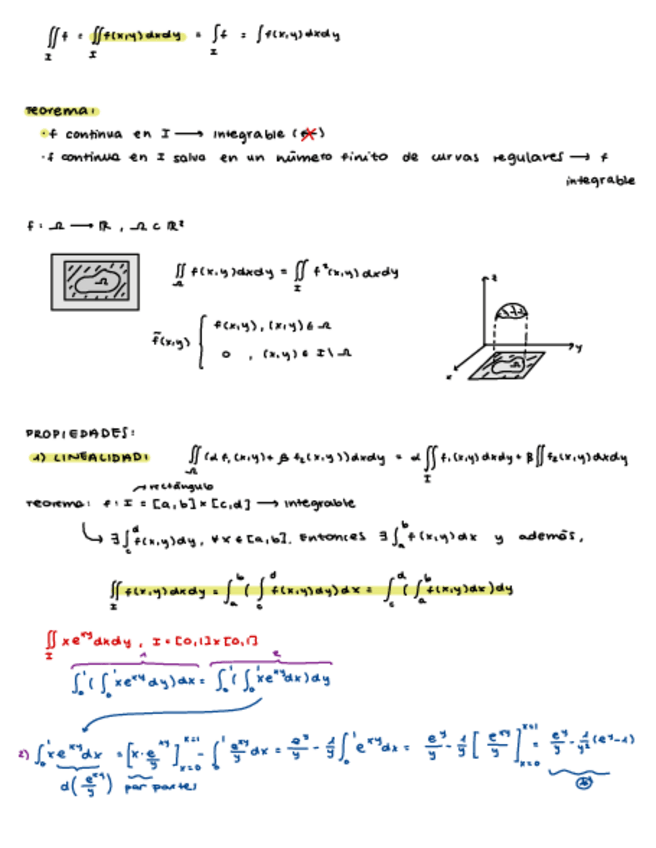 ∬_I f = ∬_I f(x,y) dx dy = ∫_I f = ∫ f(x,y) dx dy
Teorema:
· f continua en I → integrable (*)
· f continua en I salva en un número finito de curvas regulares → f
integrable
f: Ω → ℝ, Ω ⊂ ℝ²
∬_Ω f(x,y) dx dy = ∬_I f~(x,y) dx dy
Ω
z
y
x
Ω
f̃(x,y) { f(x,y), (x,y) ∈ Ω
0, (x,y) ∈ I \ Ω
PROPIEDADES:
1) LINEALIDAD: ∬_Ω (α f₁(x,y) + β f₂(x,y)) dx dy = α ∬_I f₁(x,y) dx dy + β ∬ f₂(x,y) dx dy
→ rectángulo
Teorema: f: I = [a,b] × [c,d] → integrable
↳ ∃ ∫_c^d f(x,y) dy, ∀x ∈ [a,b]. Entonces ∃ ∫_a^b f(x,y) dx y además,
∬_I f(x,y) dx dy = ∫_a^b ( ∫_c^d f(x,y) dy) dx = ∫_c^d ( ∫_a^b f(x,y) dx) dy
∬_I x e^{xy} dx dy, I = [0,1] × [0,1]
1 2
∫_0^1 ( ∫_0^1 x e^{xy} dy) dx = ∫_0^1 ( ∫_0^1 x e^{xy} dx) dy
2) ∫_0^1 x e^{xy} dx = [x · e^{xy}/y]_{x=0}^{x=1} - ∫_0^1 e^{xy}/y dx = e^y/y - 1/y ∫_0^1 e^{xy} dx = e^y/y - 1/y [e^{xy}/y]_{x=0}^{x=1} = e^y/y - 1/y² (e^y - 1)
d(e^{xy}/y) por partes